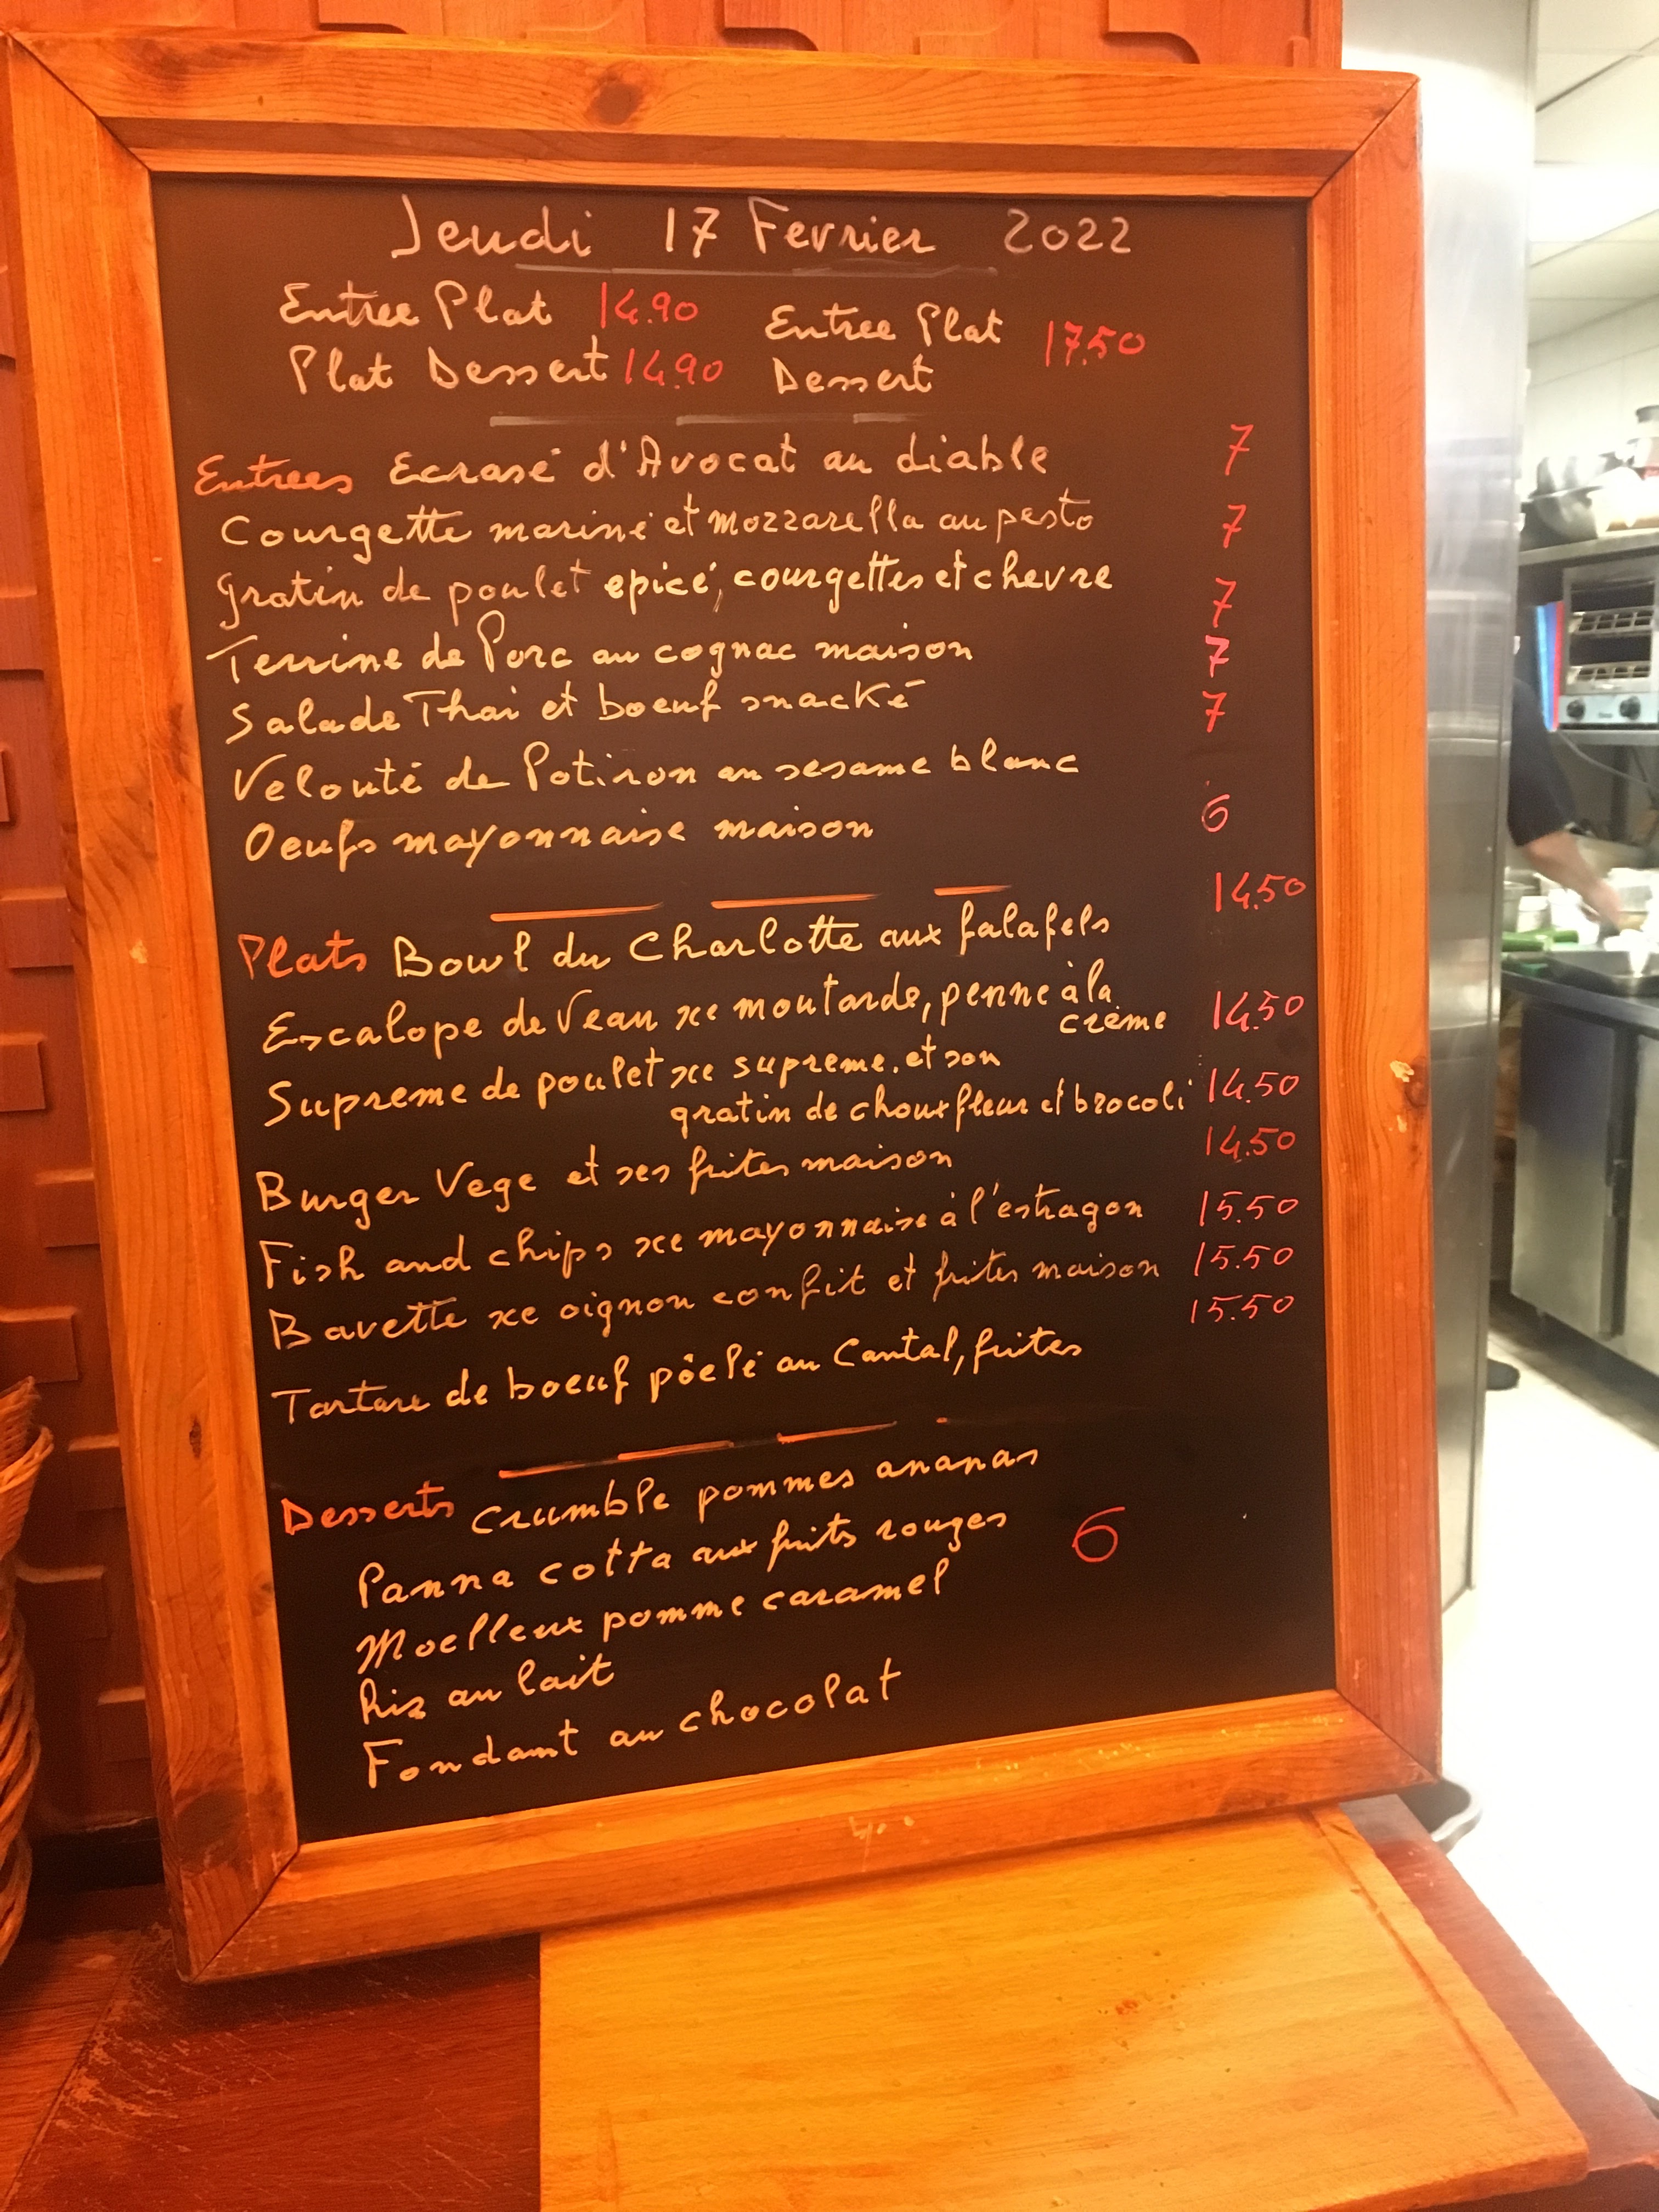 Jeudi 17 Fevrier 2022
Entree Plat 14.90
Plat Dessert 14.90
Entree Plat 17.50
Dessert
Entrees Ecrasé d'Avocat au diable 7
Courgette mariné et mozzarella au pesto 7
Gratin de poulet epicé, courgettes et chevre 7
Terrine de Porc au cognac maison 7
Salade Thai et boeuf snacké 7
Velouté de Potiron au sesame blanc
Oeufs mayonnaise maison 6
Plats Bowl du Charlotte aux falafels 14.50
Escalope de Veau sce moutarde, penne à la
crème 14.50
Supreme de poulet sce supreme. et son
gratin de chouxfleur et brocoli 14.50
Burger Vege et ses frites maison 14.50
Fish and chips sce mayonnaise à l'estragon 15.50
Bavette sce oignon confit et frites maison 15.50
Tartare de boeuf pôelé au Cantal, frites 15.50
Desserts Crumble pommes ananas
Panna cotta aux fruits rouges 6
Moelleux pomme caramel
Riz au lait
Fondant au chocolat